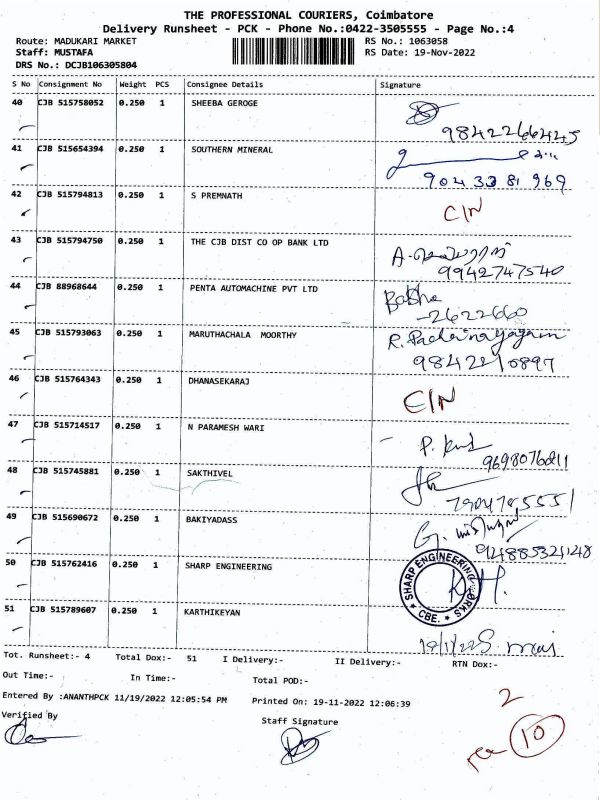 THE PROFESSIONAL COURIERS, Coimbatore
Delivery Runsheet - PCK - Phone No.:0422-3505555 - Page No.:4
Route: MADUKARI MARKET RS No.: 1063058
Staff: MUSTAFA RS Date: 19-Nov-2022
DRS No.: DCJB106305804
S No Consignment No Weight PCS Consignee Details Signature
40 CJB 515758052 0.250 1 SHEEBA GEROGE
9842266425
41 CJB 515654394 0.250 1 SOUTHERN MINERAL
904 33 81 969
42 CJB 515794813 0.250 1 S PREMNATH
C/N
43 CJB 515794750 0.250 1 THE CJB DIST CO OP BANK LTD
9942747540
44 CJB 88968644 0.250 1 PENTA AUTOMACHINE PVT LTD
Babha
-2622660
45 CJB 515793063 0.250 1 MARUTHACHALA MOORTHY
R. Padainayagam
9842210897
46 CJB 515764343 0.250 1 DHANASEKARAJ
C/N
47 CJB 515714517 0.250 1 N PARAMESH WARI
9698076011
48 CJB 515745881 0.250 1 SAKTHIVEL
49 CJB 515690672 0.250 1 BAKIYADASS
50 CJB 515762416 0.250 1 SHARP ENGINEERING
SHARP ENGINEERING WORKS
CBE.
51 CJB 515789607 0.250 1 KARTHIKEYAN
Tot. Runsheet:- 4 Total Dox:- 51 I Delivery:- II Delivery:- RTN Dox:-
Out Time:- In Time:- Total POD:-
Entered By :ANANTHPCK 11/19/2022 12:05:54 PM Printed On: 19-11-2022 12:06:39
Verified By Staff Signature
2
10